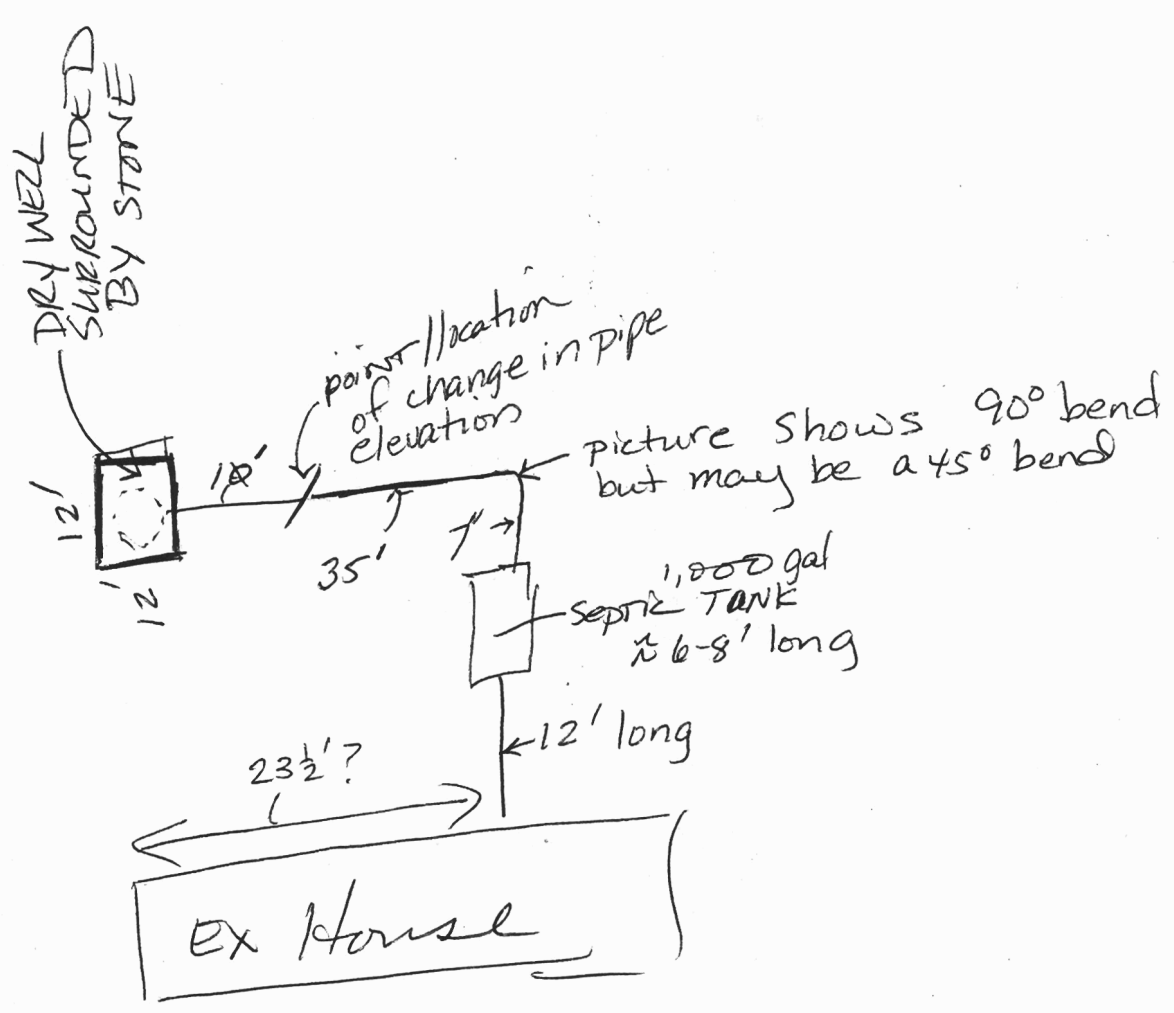 DRY WELL
SURROUNDED
BY STONE
point/location
of change in pipe
elevation
10'
12'
12'
35'
picture shows 90° bend
but may be a 45° bend
1,000 gal
Septic TANK
≈ 6-8' long
12' long
23½'?
Ex House